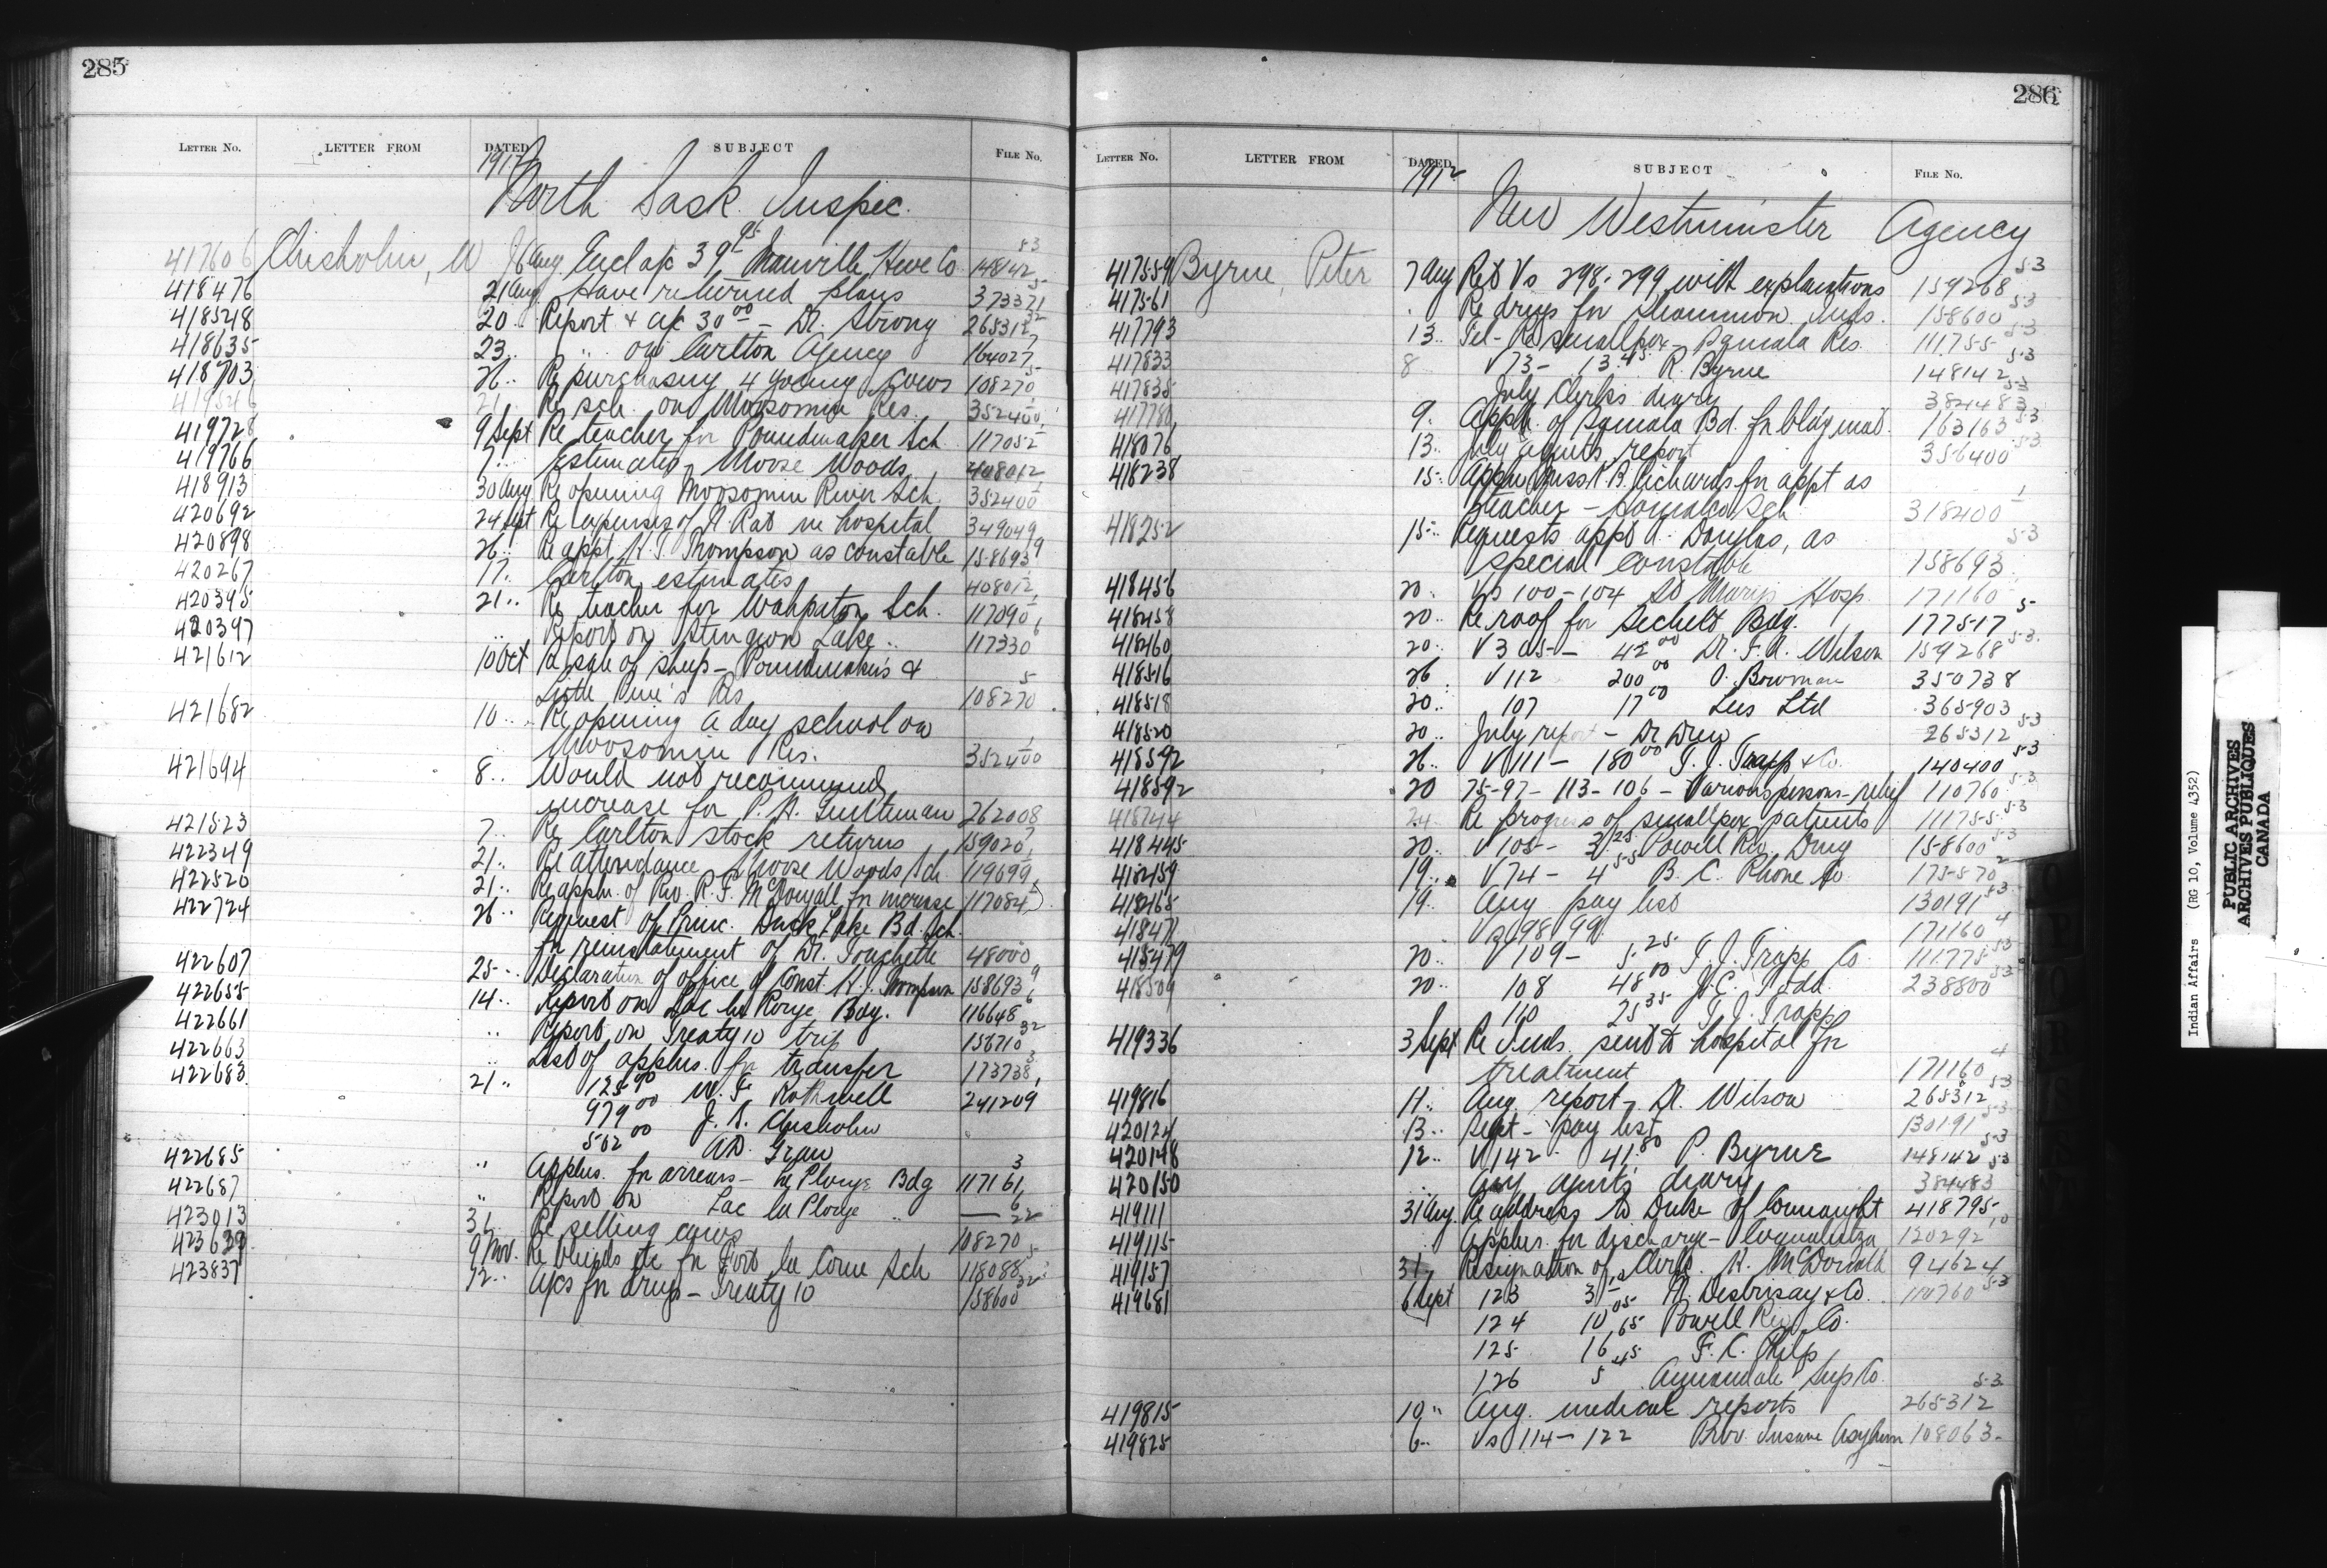 285
LETTER NO. LETTER FROM DATED SUBJECT FILE NO.
1912
North Sask. Inspec.
417606 Chisholm, W 16 Aug. Encl a/c 39.95 Manville Hdwe Co 148142 83
418476 21 Aug. Have returned plans 373371 5
418528 20 .. Report & a/c 30.00 - Dr. Strong 265312 32
418635 23 .. " on Carlton Agency 164027 7
418703 26 .. Re purchasing 4 young cows 108270 5
419526 21 Re sch. on Moosomin Res. 352400 1
419728 9 Sept Re teacher for Poundmaker Sch 117052 1
419766 7 .. Estimates, Moose Woods 408012
418913 30 Aug Re opening Moosomin River Sch. 352400 1
420692 24 Sept Re expenses of A Rat in hospital 349049
420898 26 .. Re appt. H. J. Thompson as constable 158693 9
420267 17 .. Carlton estimates 408012
420395 21 .. Re teacher for Wahpaton Sch. 117090 1
420397 .. Report on Sturgeon Lake .. 117330 6
421612 10 Oct Re sale of sheep - Poundmaker's &
Little Pine's Res 108270 5
421682 10 .. Re opening a day school on
Moosomin Res. 352400 1
421694 8 .. Would not recommend
increase for P. H. 262008
421523 7 .. Re Carlton stock returns 159020 7
422349 21 .. Re attendance Moose Woods Sch 119699 1
422520 21 .. Re appln. of Rev. R. F. McDougall for increase 117084 1
422724 26 .. Request of Princ. Duck Lake Bd. Sch.
for reinstatement of Dr. Touchette 48000
422607 25 .. Declaration of office of Const. H. J. Thompson 158693 9
422655 14 .. Report on Lac la Ronge Bdg. 116648 6
422661 .. Report on Treaty 10 trip 158710 32
422663 .. List of applns. for transfer 173738 3
422683 21 .. 125.90 W. F. Rothwell 241209 1
979.00 J. S. Chisholm
502.00 A.D.
422685 .. Applns. for arrears - la Plonge Bdg 117161 3
422687 .. Report on Lac la Plonge .. — 6
423013 31 Re selling cows 108270 22
423629 9 Nov. Re blinds etc for Fort la Corne Sch 118088 5
423837 12 .. A/cs for drugs - Treaty 10 158600 32
286
LETTER NO. LETTER FROM DATED SUBJECT FILE NO.
1912
New Westminster Agency
417559 Byrne, Peter 7 Aug Retd Vs 298-299 with explanations 159268 53
417561 . Re drugs for Inds. 158600 53
417793 13 .. Tel - Re smallpox - Res. 111755 53
417833 8 V 73 - 13.45 R. Byrne 148142 53
417835 July Clerks diary 384483 53
417780 9 . Appln. of Bd. for bldg mat. 163163 53
418076 13 . July agents report 356400 53
418238 15 .. Appln. Miss K. B. Richards for appt as
teacher - Homalco Sch 318400 1
418252 15 .. Requests appt Douglas, as
special constable 158693 53
418456 20 . Vs 100-104 St Marys Hosp. 171160
418458 20 .. Re roof for Sechelt Bdg. 177517 5
418460 20 .. V 305 - 42.00 Dr. F. A. Wilson 159268 53
418516 26 . V 112 200.00 O. Bowman 350738
418518 20 .. 107 17.00 Lees Ltd 365903
418520 20 .. July report - Dr Drew 265312 53
418592 26 .. V 111 - 180.00 T. J. Trapp & Co. 140400 53
418592 20 75-97-113-106 - Various persons - relief 110760 53
418744 24 Re progress of smallpox patients 111755 53
418445 20 .. V 105 - 3.25 Powell Riv. Drug 158600 53
418459 19 .. V 74 - 4.55 B. C. Phone Co. 175570 2
418465 19 .. Aug pay list 130191 53
418471 Vs 98 99 171160 4
418479 20 .. V 109 - 5.25 T. J. Trapp Co. 111775 53
418509 20 .. 108 48.00 J. C. Todd 238800 53
110 25.35 T. J. Trapp
419336 3 Sept Re Inds. sent to hospital for
treatment 171160 4
419816 11 .. Aug. report - Dr. Wilson 265312 53
420124 13 .. Sept - pay list 130191 53
420148 12 .. V 142 . 41.80 P. Byrne 148142 53
420150 .. Aug agent's diary 384483 53
419111 31 Aug. Re address to Duke of Connaught 418795
419115 .. Applns. for discharge - Coqualeetza 120292 10
419157 31 . Resignation of Clerk. R. McDonald 94624
419681 6 Sept 123 3.15 A. Desbrisay & Co. 110760 53
124 10.05 Powell Riv Co.
125 16.65 F. C. Philp
126 5.45 Annandale Sup Co.
419815 10 " Aug. medical reports 265312 53
419825 6 .. Vs 114-122 Prov. Insane Asylum 108063
Indian Affairs (RG 10, Volume 4352)
PUBLIC ARCHIVES
ARCHIVES PUBLIQUES
CANADA